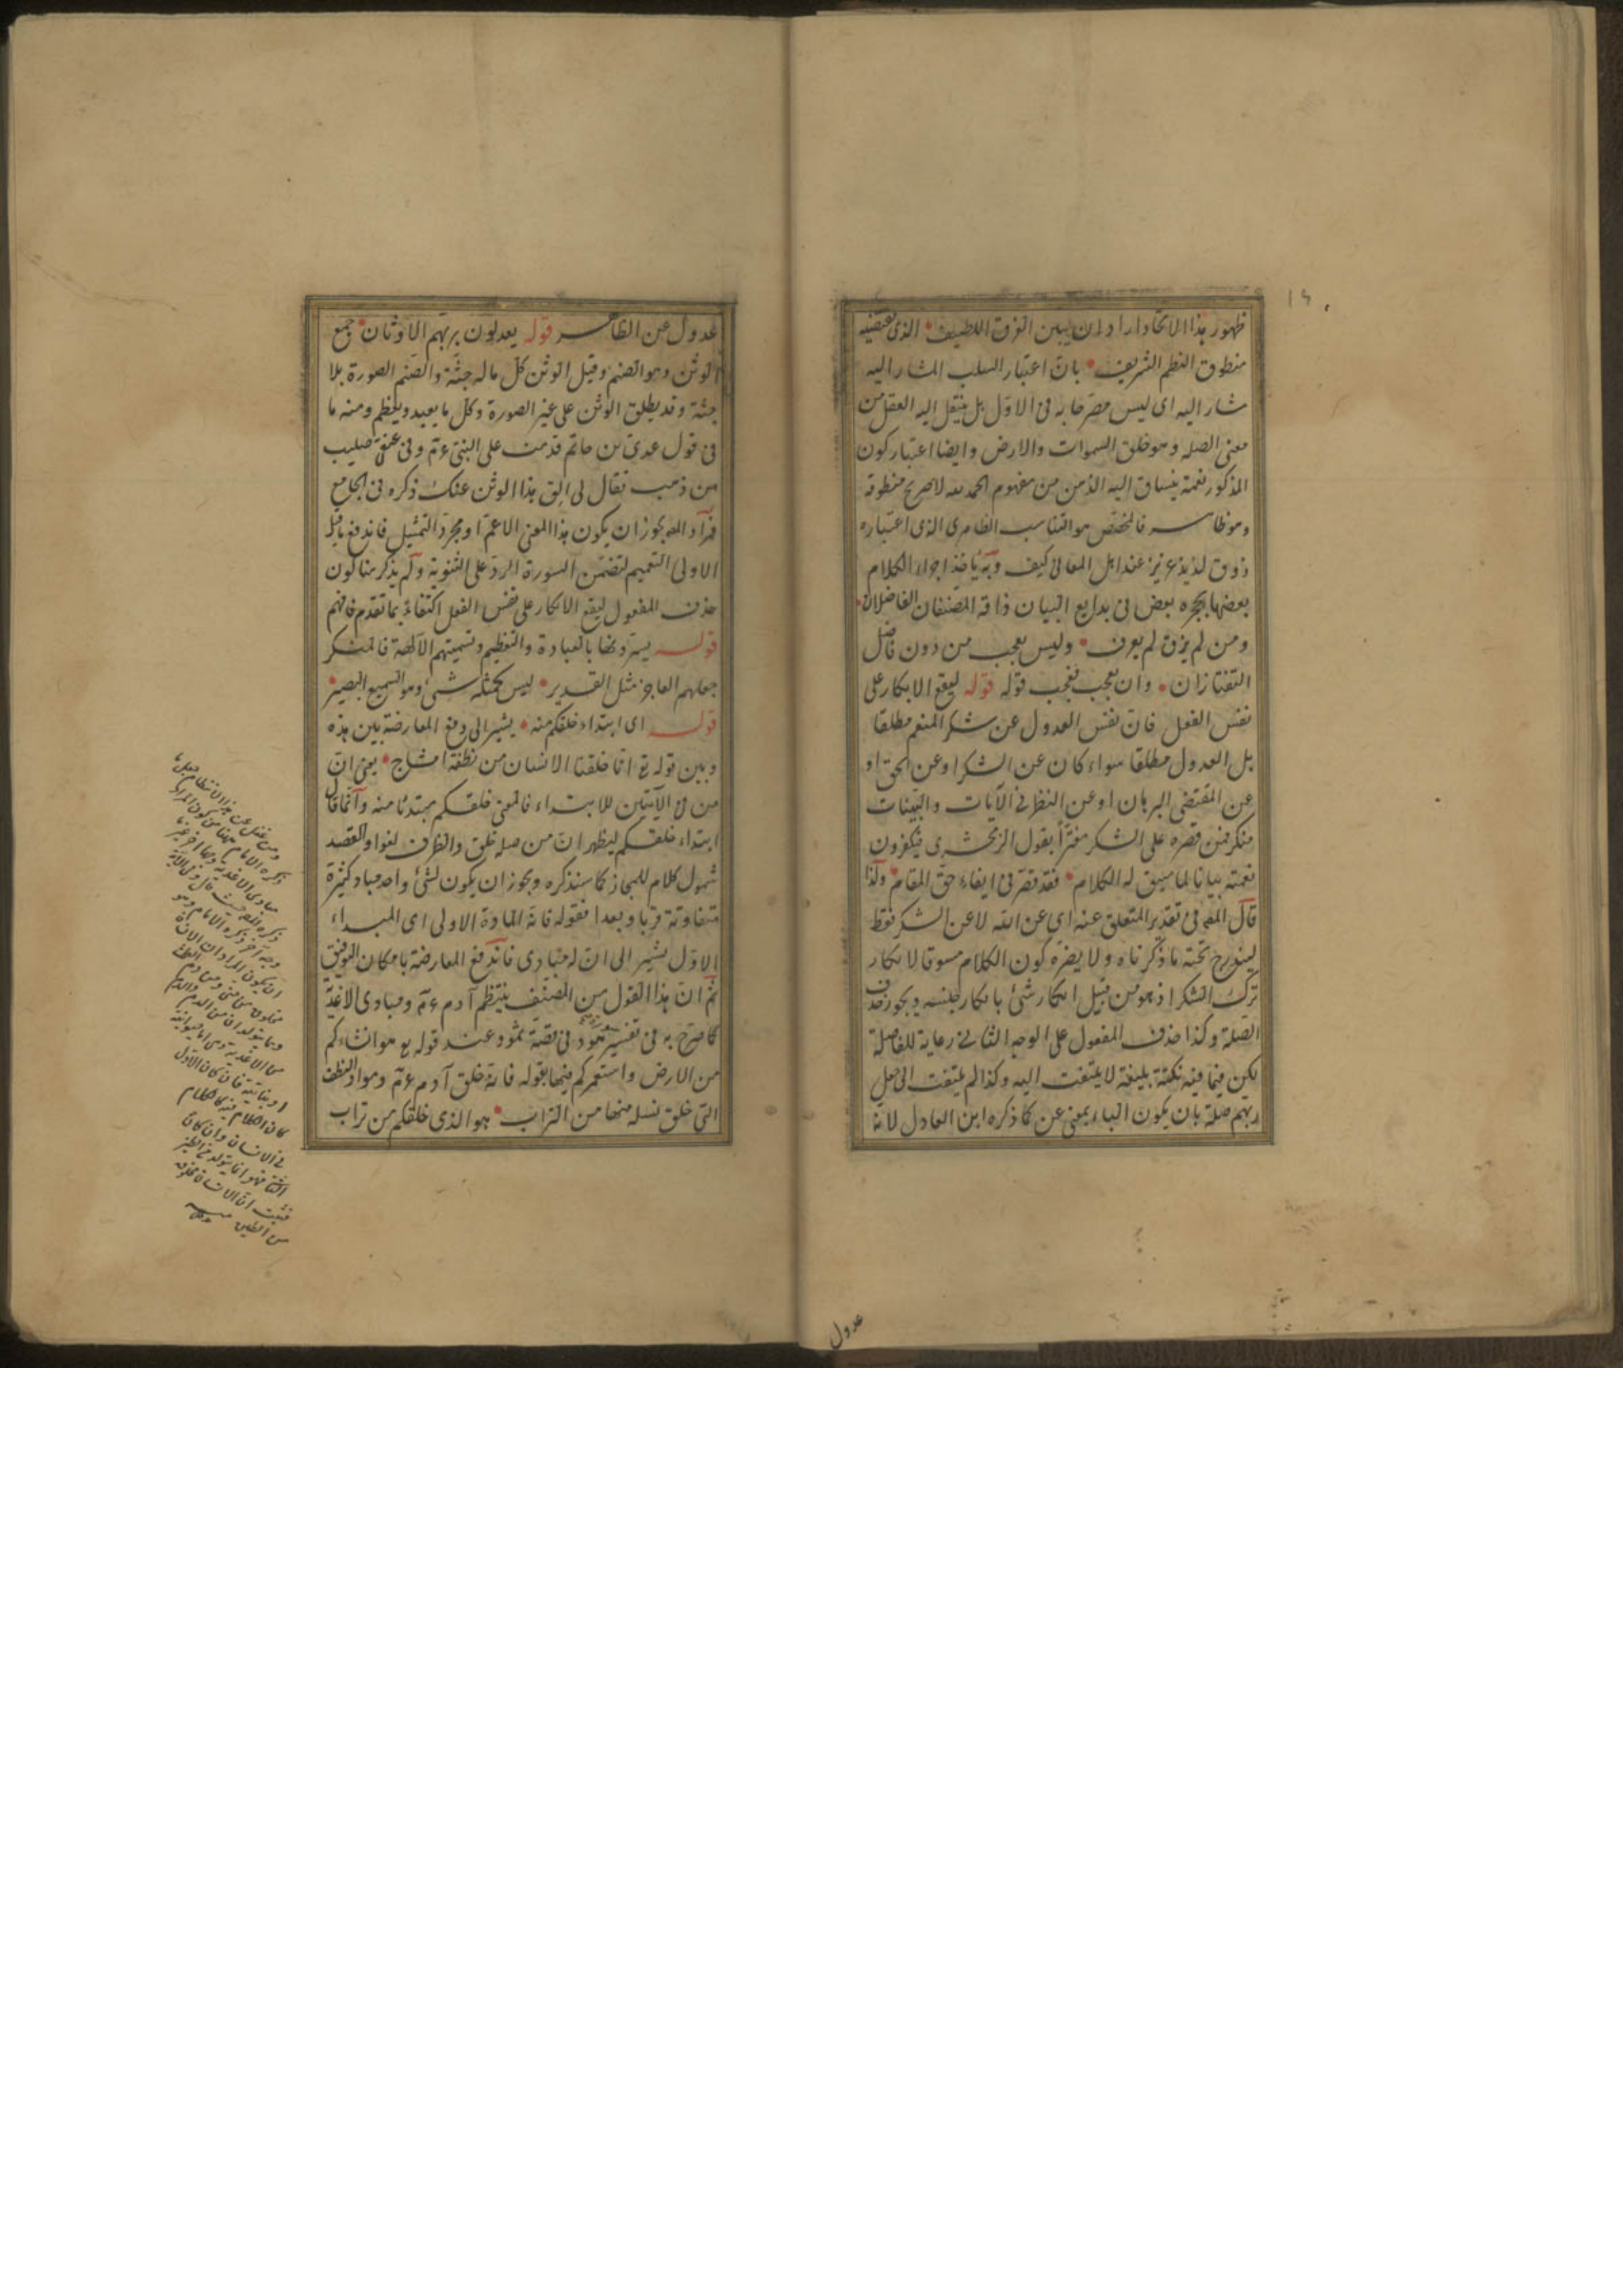 ظهور هذا الاتحاد اراد ان يبين الفرق اللطيف الذى يقتضيه
منطوق النظم الشريف بان اعتبار السلب المشار اليه
مشار اليه اى ليس مصرحا به فى الاول بل ينتقل اليه العقل من
معنى الصله وهو خلق السموات والارض وايضا اعتبار كون
المذكور نعمة ينساق اليه الذهن من مفهوم الحمد لله لا صريح منطوقه
وهو ظاهر فالمختص هو التناسب الظاهرى الذى اعتباره
ذوق لذيذ عزيز عند اهل المعالى كيف وبه ياخذ اجزاء الكلام
بعضها بحجزه بعض فى بدايع البيان ذاقه المصنفان الفاضلان
ومن لم يذق لم يعرف وليس بعجب من دون فاضل
التفتازان وان تعجب فعجب قوله قوله ليقع الانكار على
نفس الفعل فان نفس العدول عن شكر المنعم مطلقا
بل العدول مطلقا سواء كان عن الشكر او عن الحق او
عن المقتضى البرهان او عن النظر فى الآيات والبينات
منكر فمن قصره على الشكر مغترا بقول الزمخشرى فيكفرون
نعمته بيانا لما سيق له الكلام فقد قصر فى ايفاء حق المقام ولذا
قال المص فى تقدير المتعلق عنه اى عن الله لا عن الشكر فقط
ليندرج تحته ما ذكرناه ولا يضره كون الكلام مسوقا لانكار
ترك الشكر اذ هو من قبيل انكار شئ بانكار جنسه ويجوز حذف
الصلة وكذا حذف المفعول على الوجه الثانى رعاية للفاصلة
لكن فيما فيه نكتة بليغة لا يلتفت اليه وكذا لم يلتفت الى جعل
بربهم صلة بان يكون الباء بمعنى عن كما ذكره ابن العادل لانه
عدول
عدول عن الظاهر قوله يعدلون بربهم الاوثان جمع
الوثن وهو الصنم وقيل الوثن كل ماله جثة والصنم الصورة بلا
جثة وقد يطلق الوثن على غير الصورة وكل ما يعبد ويعظم ومنه ما
فى قول عدى بن حاتم قدمت على النبى ءم وفى عنقى صليب
من ذهب فقال لى الق هذا الوثن عنك ذكره فى الجامع
فمراد المص يجوز ان يكون هذا المعنى الاعم او مجرد التمثيل فاندفع ما قيل
الاولى التعميم لتضمن السورة الرد على الثنوية ولم يذكر هنا كون
حذف المفعول ليقع الانكار على نفس الفعل اكتفاء بما تقدم فافهم
قوله يسوونها بالعبادة والتعظيم وتسميتهم الآلهة فالمنكر
جعلهم العاجز مثل القدير ليس كمثله شئ وهو السميع البصير
قوله اى ابتداء خلقكم منه يشير الى دفع المعارضة بين هذه
وبين قوله تع انا خلقنا الانسان من نطفة امشاج يعنى ان
من فى الآيتين للابتداء فالمعنى خلقكم مبتدئا منه وانما قال
ابتداء خلقكم ليظهر ان من صلة خلق والظرف لغو او القصد
شمول كلام للمجاز كما سنذكره ويجوز ان يكون لشئ واحد مباد كثيرة
متفاوتة قربا وبعدا فقوله فانه المادة الاولى اى المبداء
الاول يشير الى ان له مبادى فاندفع المعارضة بامكان التوفيق
ثم ان هذا القول من المصنف ينتظم آدم ءم ومبادى الاغذية
كما صرح به فى تفسير سورة هود فى قصة ثمود عند قوله تع هو انشاءكم
من الارض واستعمركم فيها بقوله فانه خلق آدم ءم ومواد النطف
التى خلق نسله منها من التراب هو الذى خلقكم من تراب
ومن غفل عن هذا الانتظام جعل ما
ذكره الامام ههنا من كون المراد
مبادى الاغذية وجها آخر غير ما
ذكره المص حيث قال
وجه آخر ذكره الامام وهو
ان يكون المراد ان الانسان
مخلوق من المنى ومن دم الطمث
وهما يتولدان من الدم والدم
من الاغذية وهى اما حيوانية
او نباتية فان كان الاول
كان الكلام فيه كالكلام
فى الانسان وان كان
الثانى فهو انما يتولد من الطين
فثبت ان الانسان مخلوق
من الطين منه